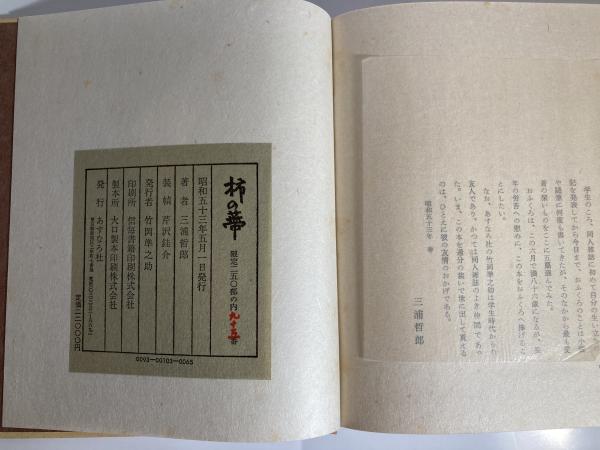 学生のころ、同人雑誌に初めて自分の生い立ち
記を発表してから今日まで、おふくろのことは小説
や随筆に何度も書いてきたが、そのなかから最も愛
着の深いものをここに五篇選んでみた。
おふくろは、この六月で満八十六歳になるが、長
年の労苦への慰めに、この本をおふくろへ捧げる
とにしたい。
なお、あすなろ社の竹岡準之助は学生時代から
友人であり、かつては同人雑誌のよき仲間であ
た。いま、この本を過分の装いで世に出して貰える
のは、ひとえに彼の友情のおかげである。
昭和五十三年 春
三浦哲郎
柿の蔕
限定二五〇部の内九十五番
昭和五十三年五月一日発行
著者 三浦哲郎
装幀 芹沢銈介
発行者 竹岡準之助
印刷所 信毎書籍印刷株式会社
製本所 大口製本印刷株式会社
発行 あすなろ社
定価一二〇〇〇円
0093-00103-0065